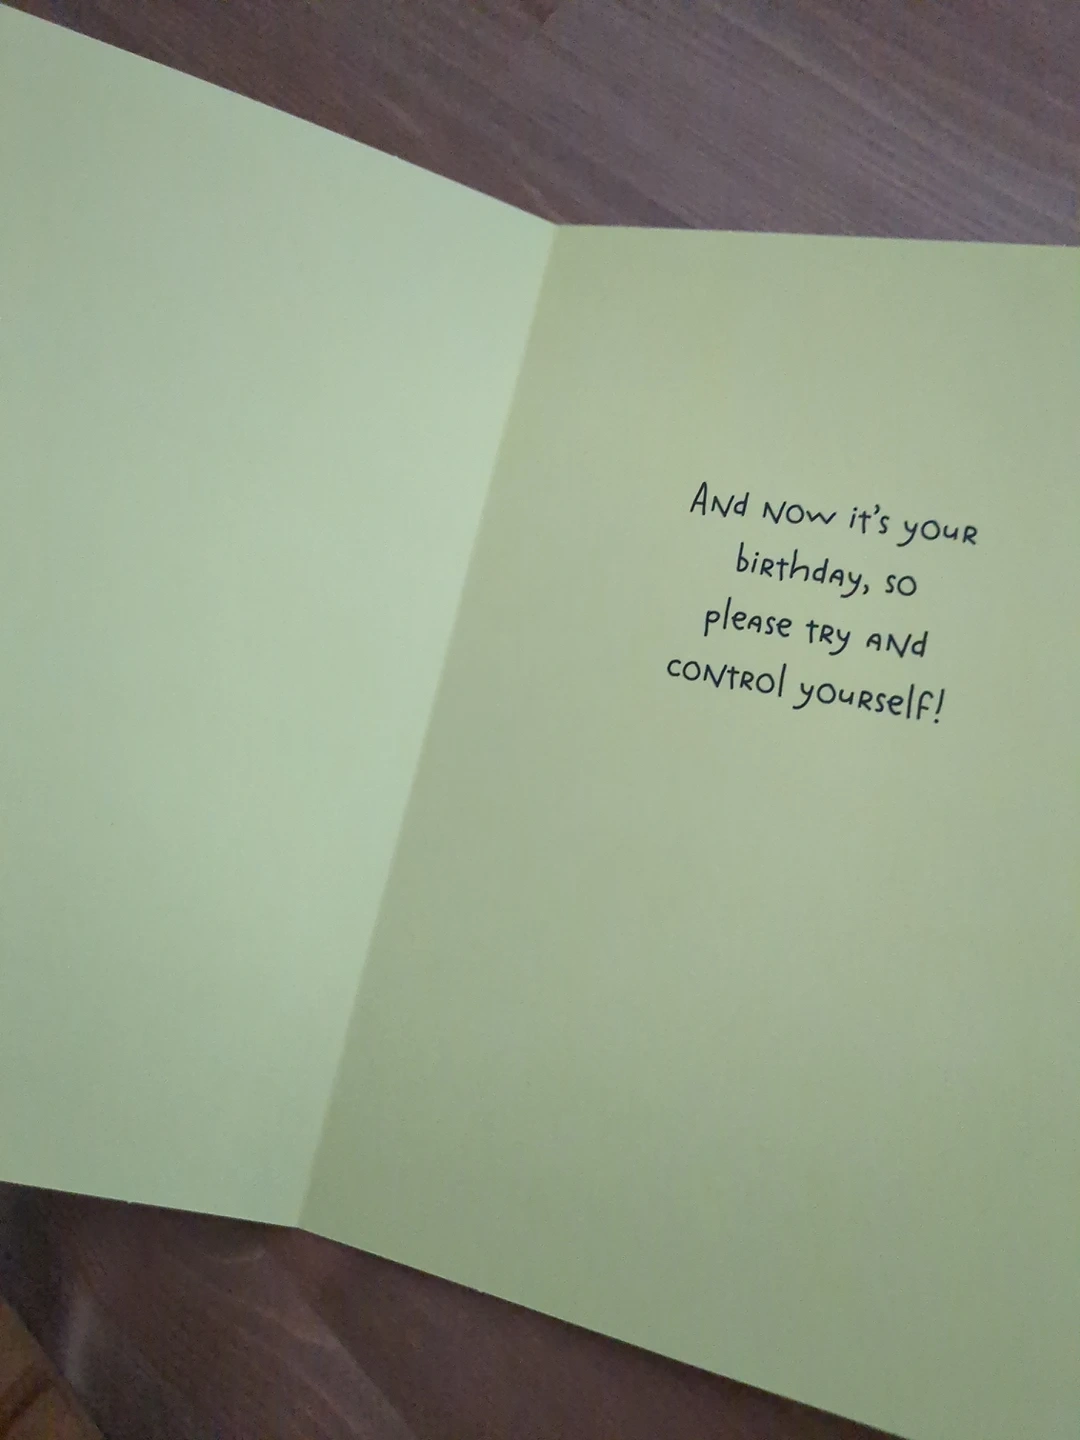 And now it's your
birthday, so
please try and
control yourself!